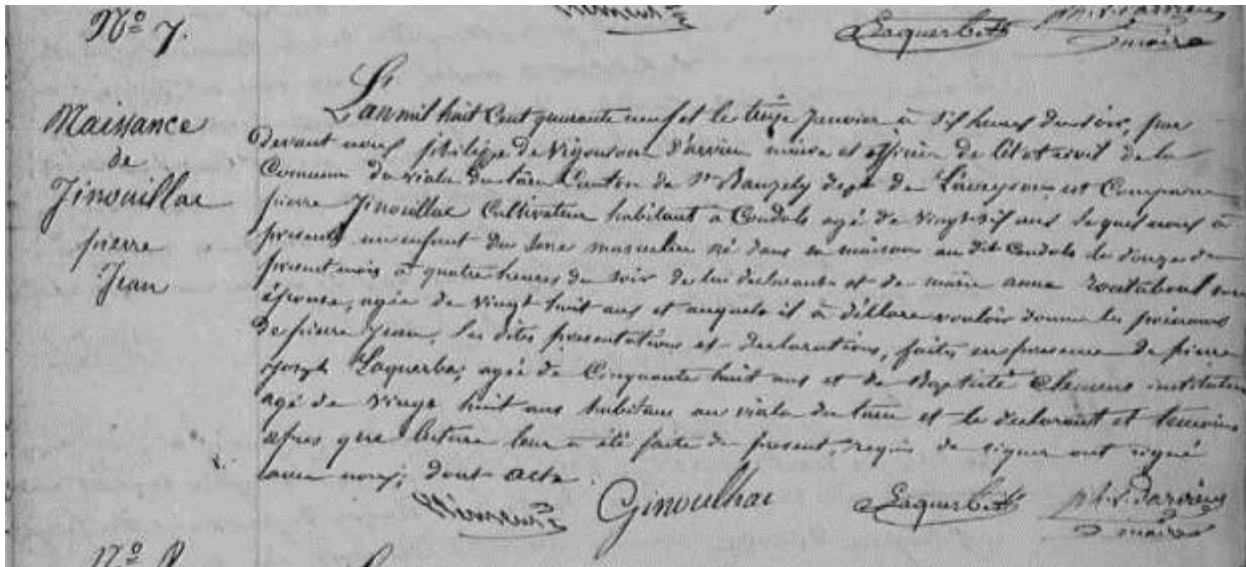 Nº 7.
Laquerbe
maire
Naissance
de
Jinouillac
pierre
Jean
L'an mil huit Cent quarante neuf et le treize Janvier à Six heures du soir, par
devant nous philippe de Vigouroux d'arvieu maire et officier de l'état civil de la
Commune du viala du tarn Canton de St Bauzely dept de L'aveyron est Comparu
pierre Jinouillac Cultivateur habitant a Coudols agé de vingt six ans lequel nous à
presenté un enfant du sexe masculin né dans sa maison au dit Coudols le douze du
present mois à quatre heures du soir de lui declarant et de marie anne routaboul son
épouse, agée de vingt huit ans et auquel il à déclaré vouloir donner les prénoms
de pierre Jean, les dites presentations et declarations, faites en presence de pierre
Joseph Laquerbe, agé de Cinquante huit ans et de Baptiste Clemens instituteur
agé de vingt huit ans habitans au viala du tarn et le declarant et temoins
après que lecture leur a été faite du present, requis de signer ont signé
avec nous; dont acte.
Clémens Ginouilhac Laquerbe ph. v. d'arvieu
maire
Nº 8